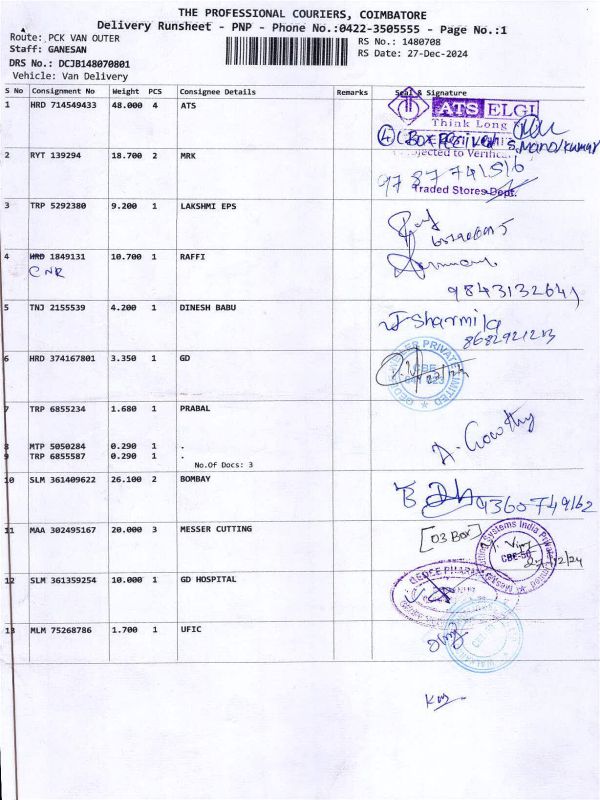 THE PROFESSIONAL COURIERS, COIMBATORE
Delivery Runsheet - PNP - Phone No.:0422-3505555 - Page No.:1
Route: PCK VAN OUTER
Staff: GANESAN
DRS No.: DCJB148070801
Vehicle: Van Delivery
RS No.: 1480708
RS Date: 27-Dec-2024
S No Consignment No Weight PCS Consignee Details Remarks Seal & Signature
1 HRD 714549433 48.000 4 ATS
ATS ELGI
Think Long
④ Box Received
S. Manojkumar
Subjected to Verific
2 RYT 139294 18.700 2 MRK
9787741516
Traded Stores Dept.
3 TRP 5292380 9.200 1 LAKSHMI EPS
4 HRD 1849131 10.700 1 RAFFI
CNR
9843132641
5 TNJ 2155539 4.200 1 DINESH BABU
J Sharmila
8682921213
6 HRD 374167801 3.350 1 GD
PRIVATE LIMITED
CBE
7 TRP 6855234 1.680 1 PRABAL
A. Gowthy
8 MTP 5050284 0.290 1 .
9 TRP 6855587 0.290 1 .
No.Of Docs: 3
10 SLM 361409622 26.100 2 BOMBAY
9360749162
11 MAA 302495167 20.000 3 MESSER CUTTING
[03 Box]
Cutting Systems India Private Limited
Messer
CBE-50
27/12/24
12 SLM 361359254 10.000 1 GD HOSPITAL
GEDEE PHARMA
13 MLM 75268786 1.700 1 UFIC